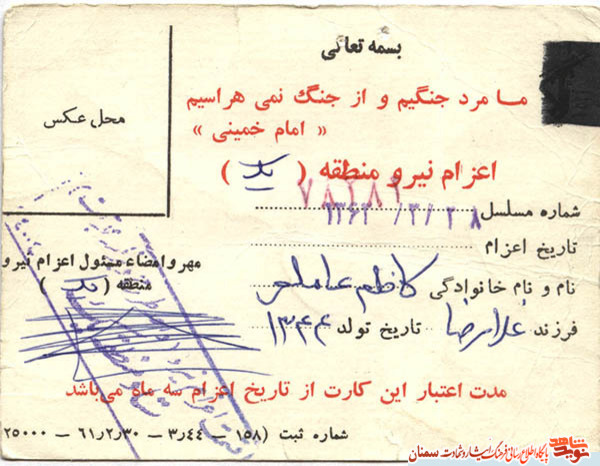 بسمه تعالی
ما مرد جنگیم و از جنگ نمی هراسیم
« امام خمینی »
محل عکس
اعزام نیرو منطقه ( یک )
شماره مسلسل ۷۸۲۸۲
۱۳۶۲ /۳/ ۲۸
تاریخ اعزام
نام و نام خانوادگی کاظم عاملو
فرزند غلامرضا تاریخ تولد ۱۳۴۴
مهر و امضاء مسئول اعزام نیرو
منطقه ( یک )
مدت اعتبار این کارت از تاریخ اعزام سه ماه می‌باشد
شماره ثبت (۱۵۸ – ۳٫۴۴ – ۶۱٫۲٫۳۰ – ۲۵۰۰۰
نوید شاهد
پایگاه اطلاع رسانی فرهنگ ایثار و شهادت سمنان